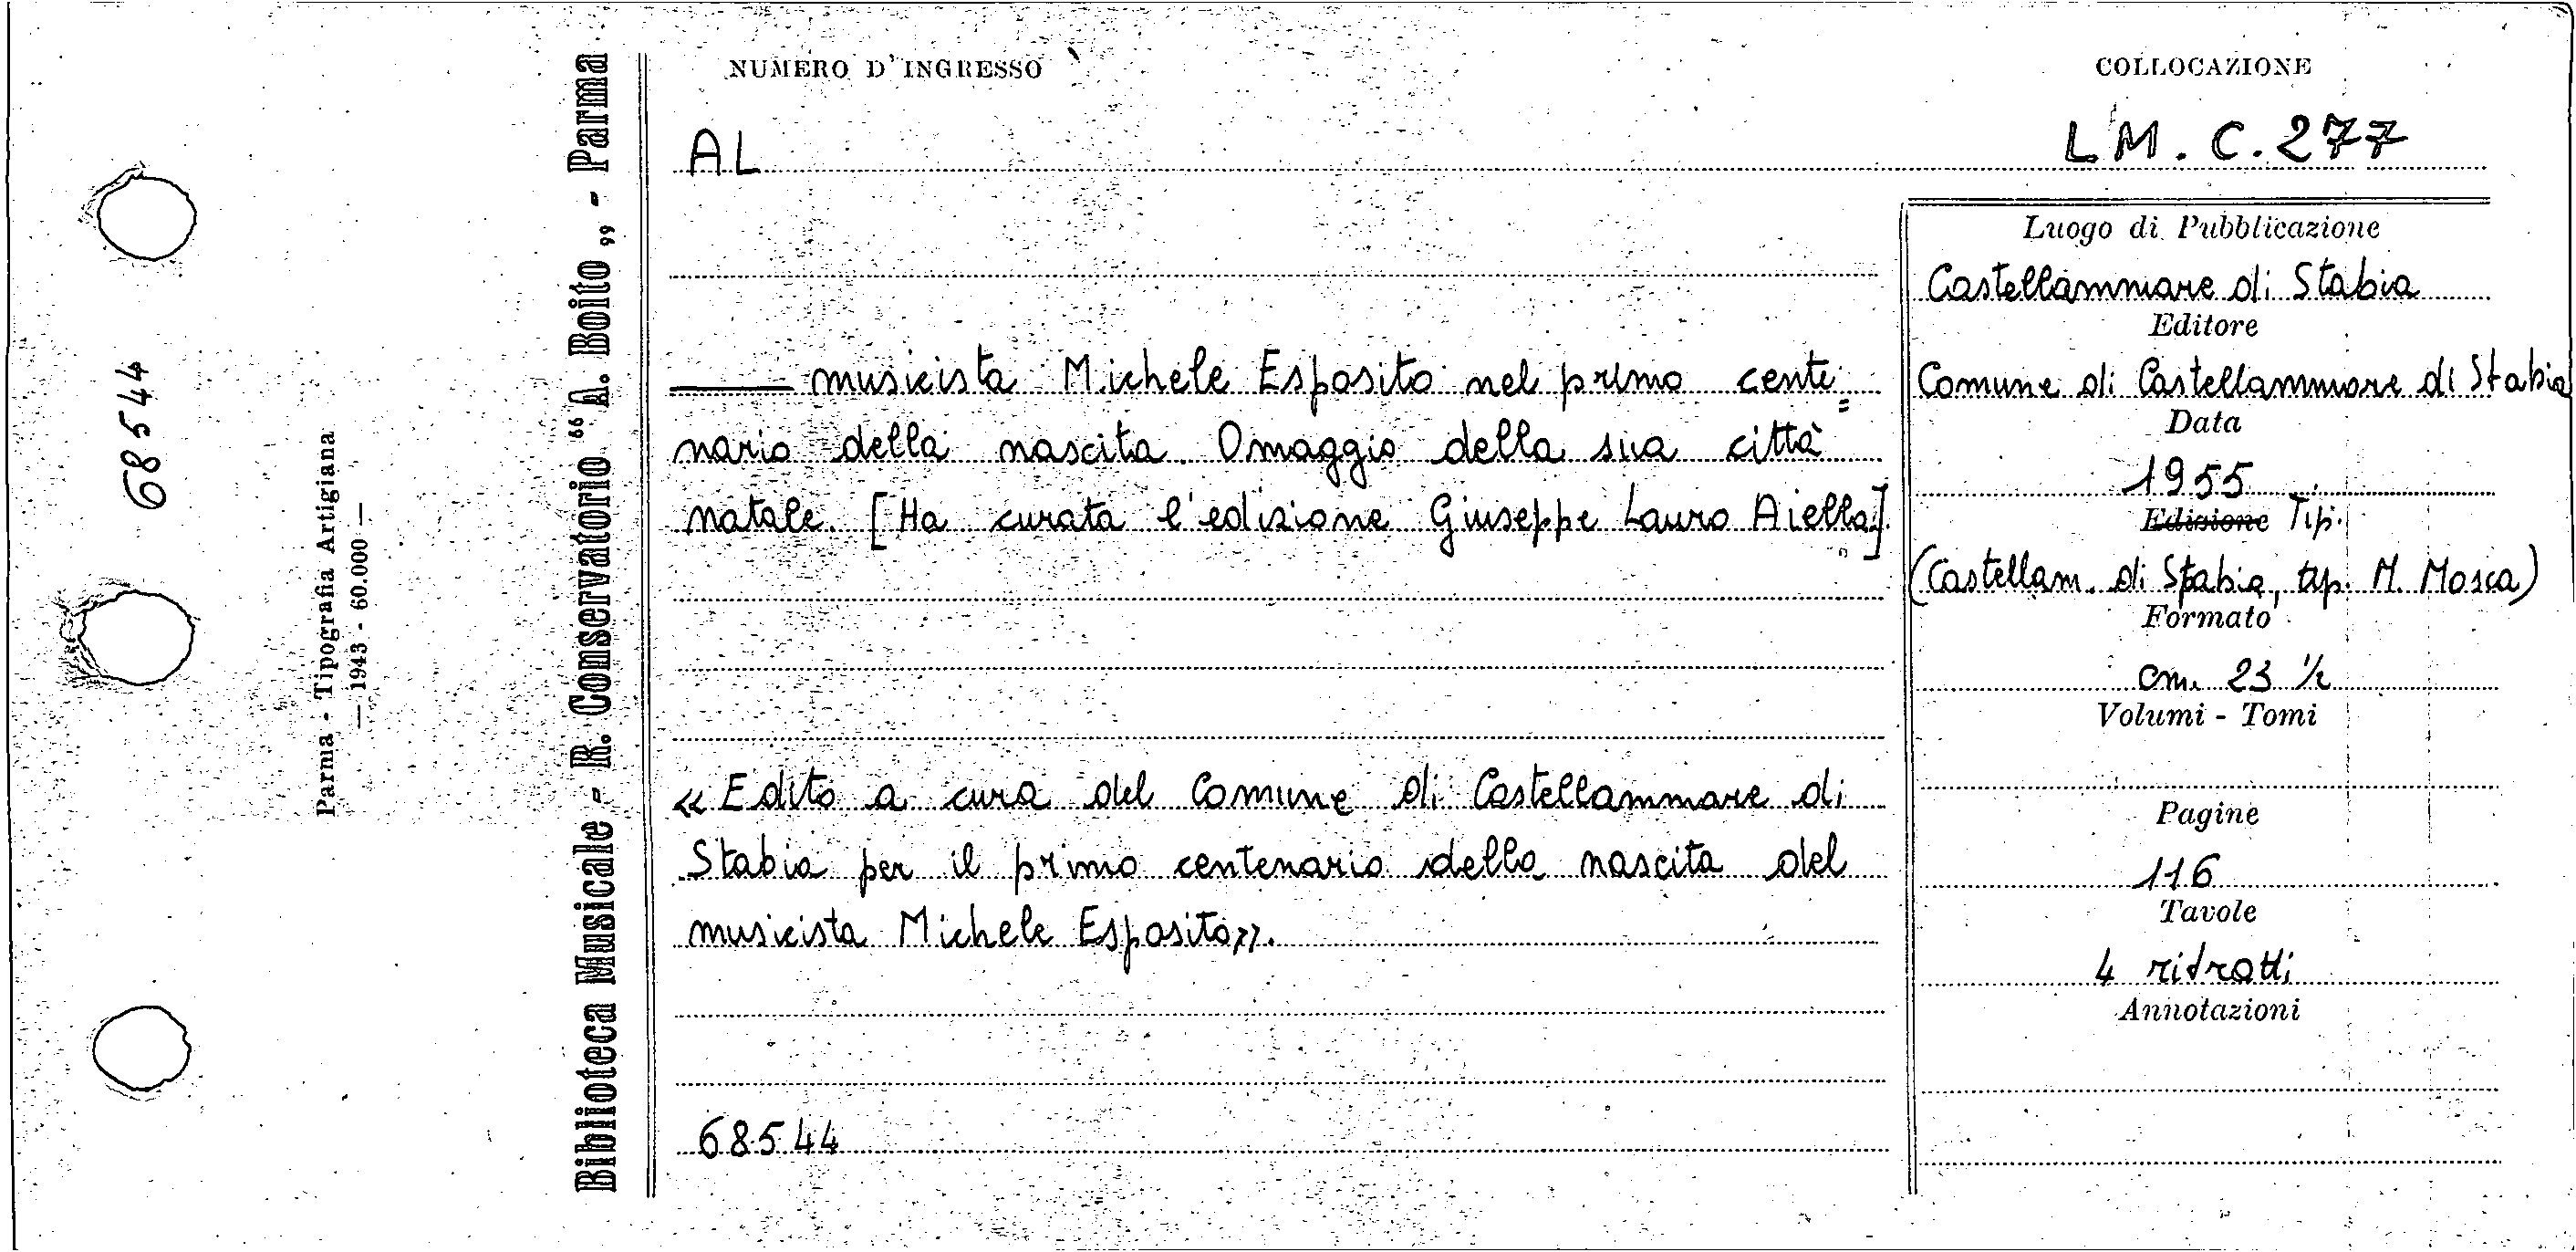 68544
Parma - Tipografia Artigiana
— 1943 - 60.000 —
Biblioteca Musicale - R. Conservatorio “ A. Boito „ - Parma
NUMERO D'INGRESSO
AL
COLLOCAZIONE
LM. C. 277
—— musicista Michele Esposito nel primo cente=
nario della nascita. Omaggio della sua città
natale. [Ha curata l'edizione Giuseppe Lauro Aiello].
« Edito a cura del Comune di Castellammare di
Stabia per il primo centenario della nascita del
musicista Michele Esposito».
68544
Luogo di Pubblicazione
Castellammare di Stabia
Editore
Comune di Castellammare di Stabia
Data
1955
Edizione Tip.
(Castellam. di Stabia, tip. M. Mosca)
Formato
cm. 23 ½
Volumi - Tomi
Pagine
116
Tavole
4 ritratti
Annotazioni